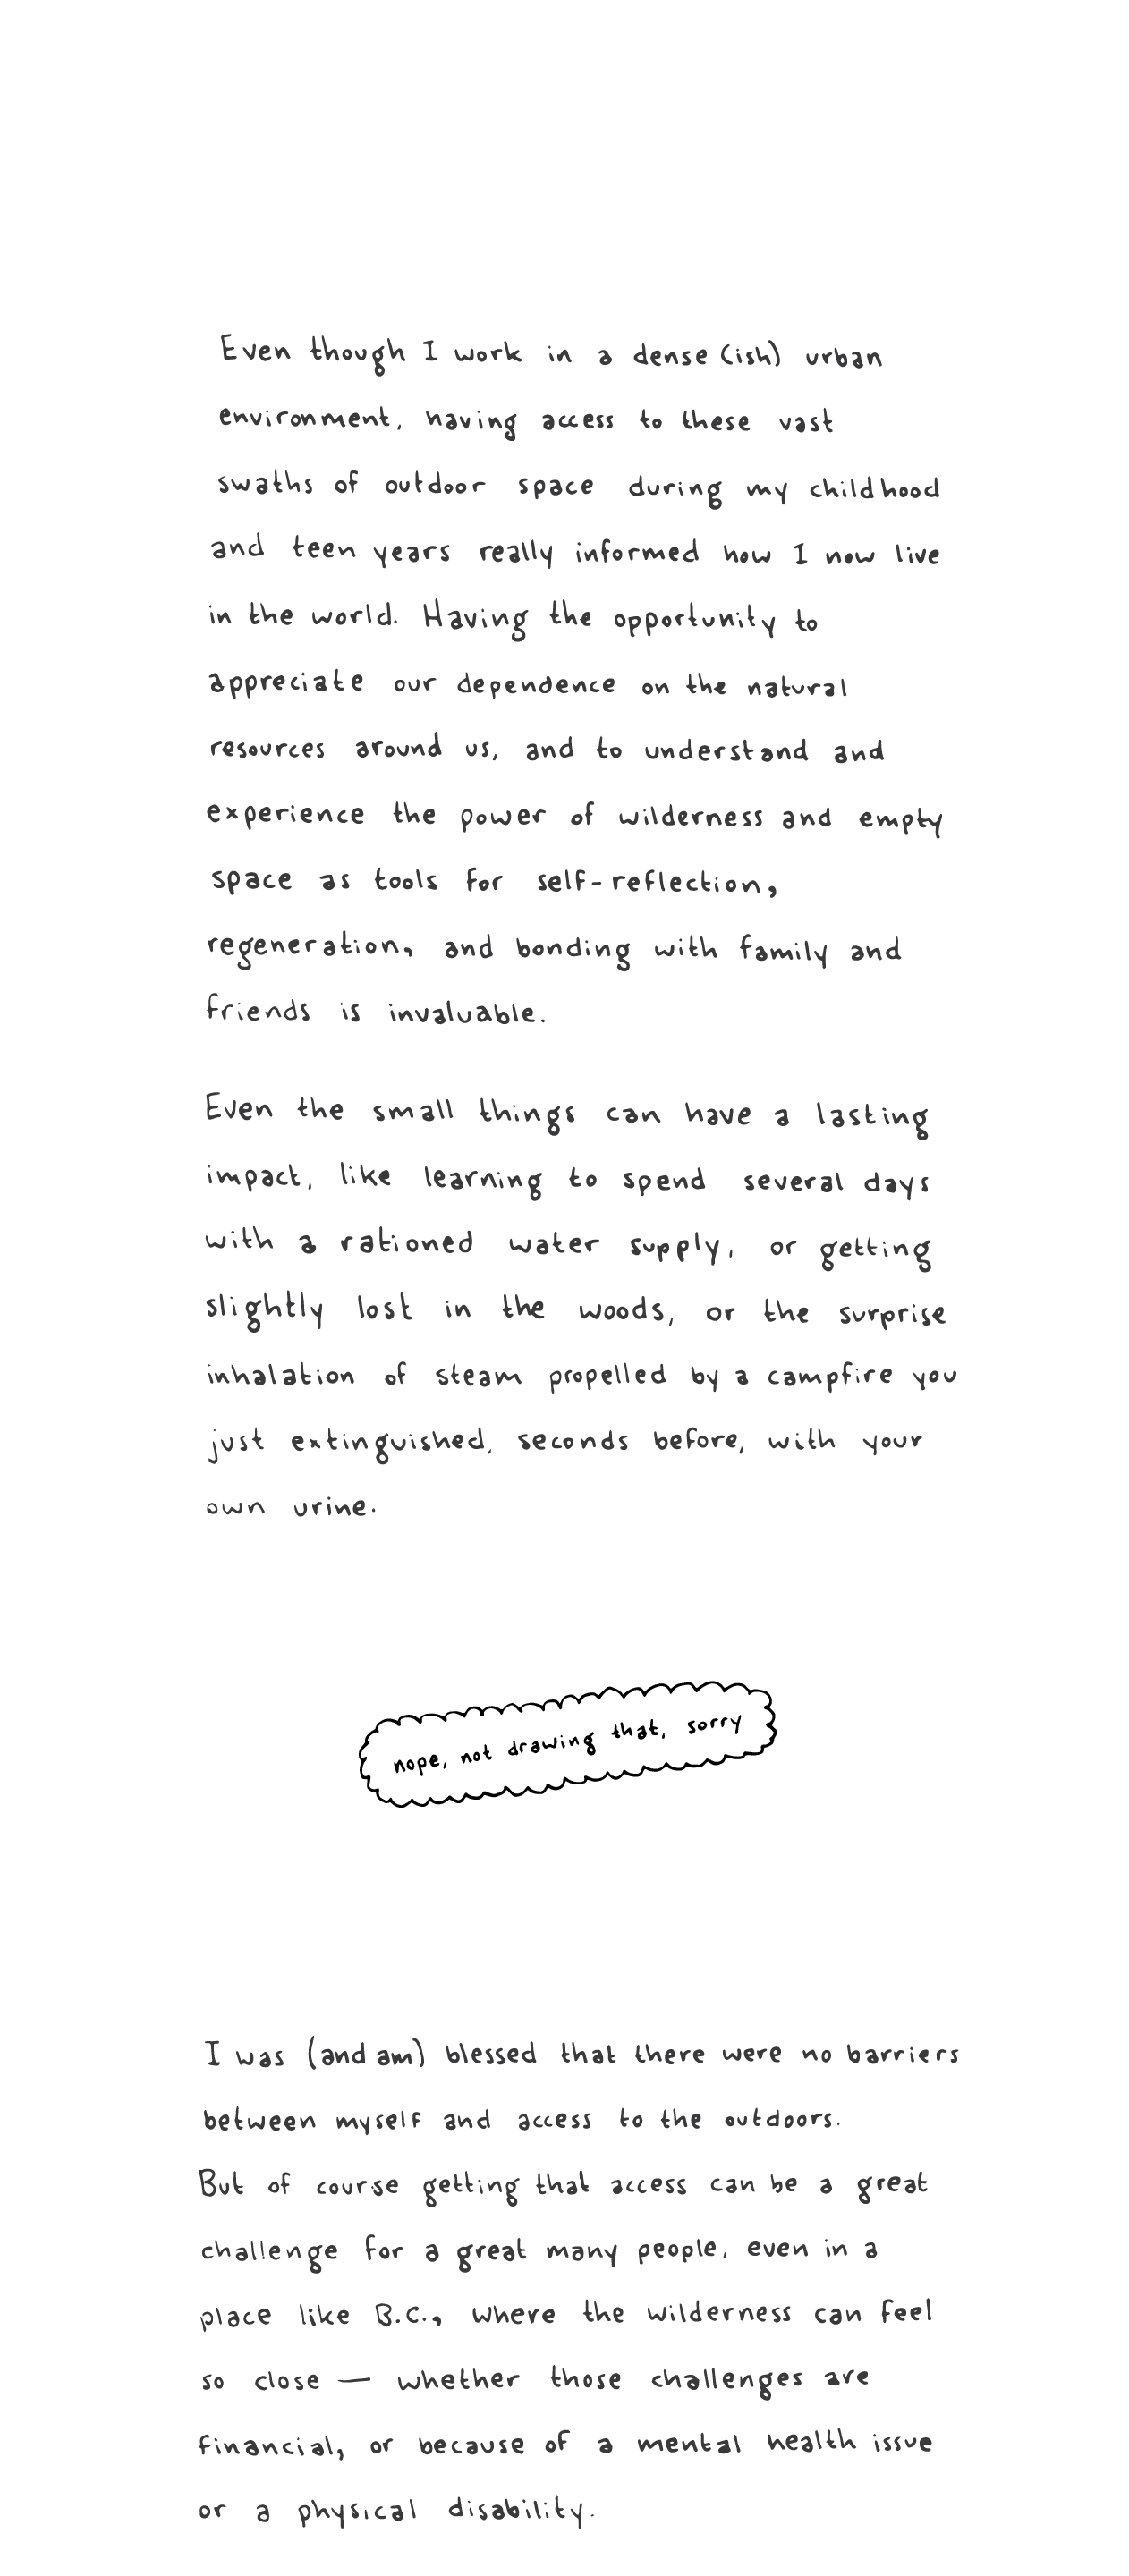 Even though I work in a dense (ish) urban
environment, having access to these vast
swaths of outdoor space during my childhood
and teen years really informed how I now live
in the world. Having the opportunity to
appreciate our dependence on the natural
resources around us, and to understand and
experience the power of wilderness and empty
space as tools for self-reflection,
regeneration, and bonding with family and
friends is invaluable.
Even the small things can have a lasting
impact, like learning to spend several days
with a rationed water supply, or getting
slightly lost in the woods, or the surprise
inhalation of steam propelled by a campfire you
just extinguished, seconds before, with your
own urine.
nope, not drawing that, sorry
I was (and am) blessed that there were no barriers
between myself and access to the outdoors.
But of course getting that access can be a great
challenge for a great many people, even in a
place like B.C., where the wilderness can feel
so close — whether those challenges are
financial, or because of a mental health issue
or a physical disability.